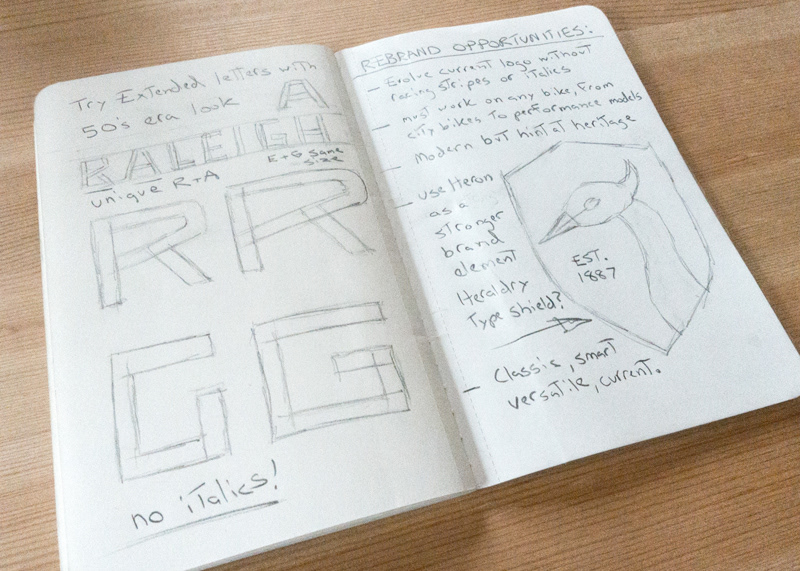 Try Extended letters with
50's era look
A
RALEIGH
unique R+A
E+G same
size
R R
G G
no italics!
REBRAND OPPORTUNITIES:
- Evolve current logo without
racing stripes or italics
- must work on any bike, from
city bikes to performance models
- Modern but hint at heritage
- use Heron
as a
stronger
brand
element
Heraldry
Type shield?
EST.
1887
- Classic, smart
versatile, current.